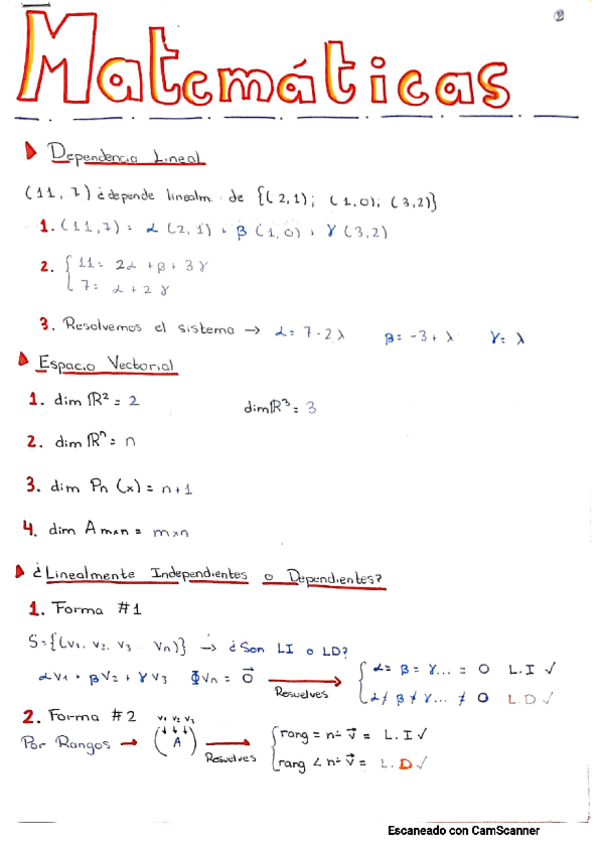 Matemáticas
Dependencia Lineal
(11, 7) ¿depende linealm. de {(2,1); (1,0); (3,2)}
1. (11,7) = α (2,1) + β (1,0) + γ (3,2)
2. { 11 = 2α + β + 3γ
7 = α + 2γ
3. Resolvemos el sistema → α = 7 - 2λ β = -3 + λ γ = λ
Espacio Vectorial
1. dim ℝ² = 2 dim ℝ³ = 3
2. dim ℝⁿ = n
3. dim Pn (x) = n+1
4. dim A mxn = mxn
¿Linealmente Independientes o Dependientes?
1. Forma #1
S = {(v1, v2, v3 vn)} → ¿Son LI o LD?
αv1 + βv2 + γv3 Φvn = 0⃗ → Resuelves { α = β = γ... = 0 L.I ✓
α ≠ β ≠ γ... ≠ 0 L.D ✓
2. Forma #2 v1 v2 v3
Por Rangos → (A) → Resuelves { rang = nº v⃗ = L.I ✓
rang < nº v⃗ = L.D ✓
Escaneado con CamScanner